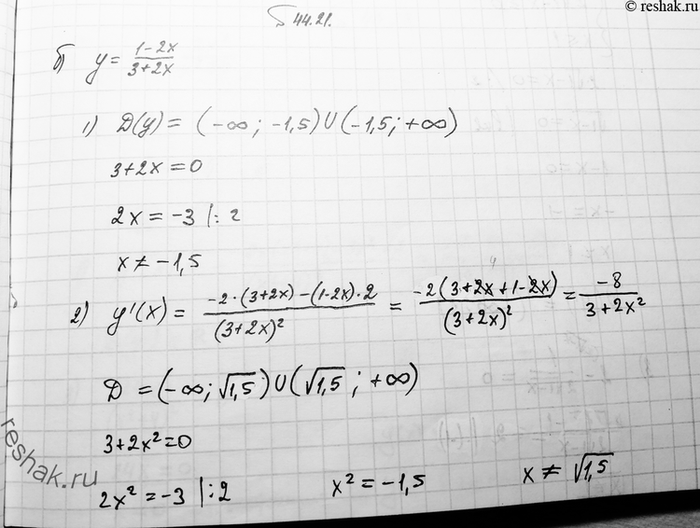 © reshak.ru
44.21.
б) y = \frac{1-2x}{3+2x}
1) D(y) = (-∞; -1,5) ∪ (-1,5; +∞)
3+2x = 0
2x = -3 |: 2
x ≠ -1,5
2) y'(x) = \frac{-2·(3+2x)-(1-2x)·2}{(3+2x)^2} = \frac{-2(3+2x+1-2x)}{(3+2x)^2} = \frac{-8}{3+2x^2}
4
D = (-∞; √1,5) ∪ (√1,5; +∞)
3+2x² = 0
2x² = -3 |: 2 x² = -1,5 x ≠ √1,5
reshak.ru